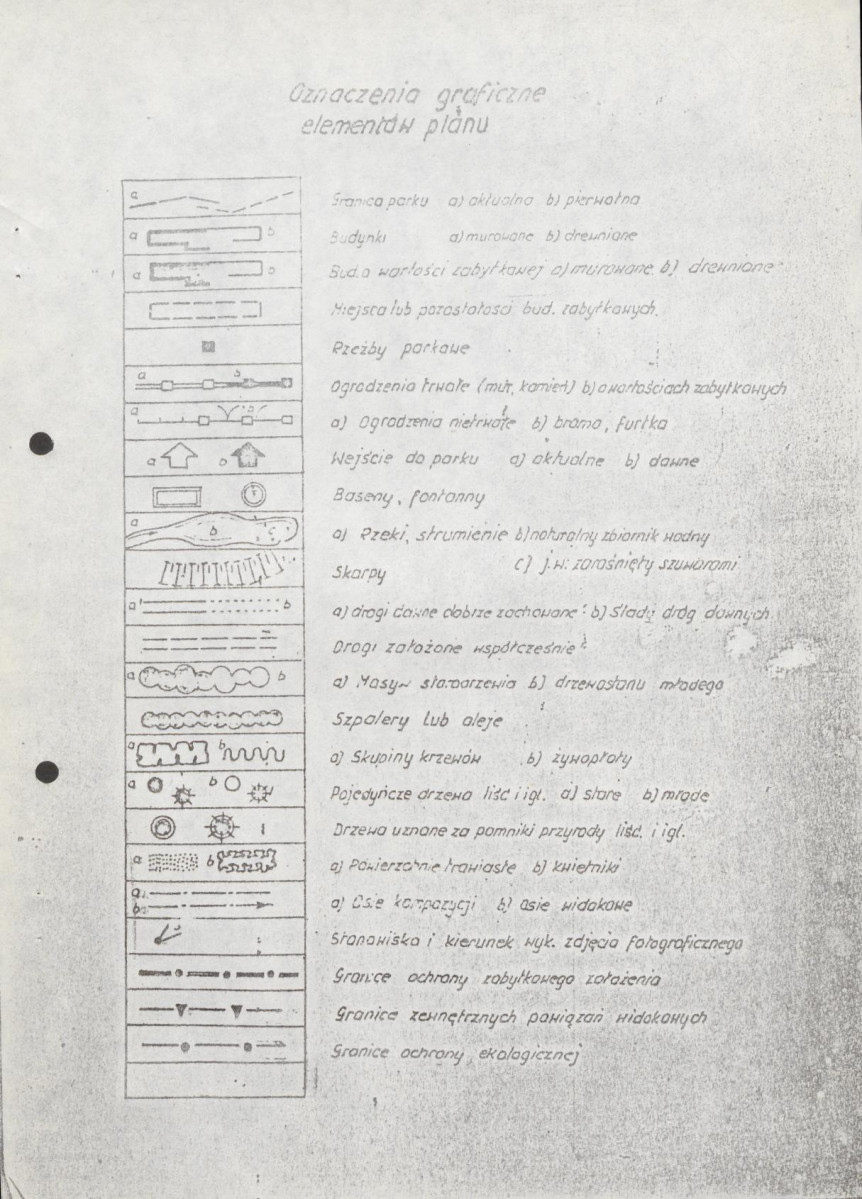 Oznaczenia graficzne
elementów planu
a Granica parku a) aktualna b) pierwotna
a b Budynki a) murowane b) drewniane
a b Bud. o wartości zabytkowej a) murowane b) drewniane
Miejsca lub pozostałości bud. zabytkowych.
Rzeźby parkowe
a b Ogrodzenia trwałe (mur, kamień) b) o wartościach zabytkowych
a b a) Ogrodzenia nietrwałe b) brama, furtka
a b Wejście do parku a) aktualne b) dawne
Baseny, fontanny
a b c a) Rzeki, strumienie b) naturalny zbiornik wodny
c) j.w. zarośnięty szuwarami
Skarpy
a b a) drogi dawne dobrze zachowane b) Ślady dróg dawnych
Drogi założone współcześnie
a b a) Masyw starodrzewia b) drzewostanu młodego
Szpalery lub aleje
a b a) Skupiny krzewów b) żywopłoty
a b Pojedyńcze drzewa liść i igl. a) stare b) młode
Drzewa uznane za pomniki przyrody liść. i igl.
a b a) Powierzchnie trawiaste b) kwietniki
a b a) Osie kompozycji b) osie widokowe
Stanowiska i kierunek wyk. zdjęcia fotograficznego
Granice ochrony zabytkowego założenia
Granice zewnętrznych powiązań widokowych
Granice ochrony ekologicznej